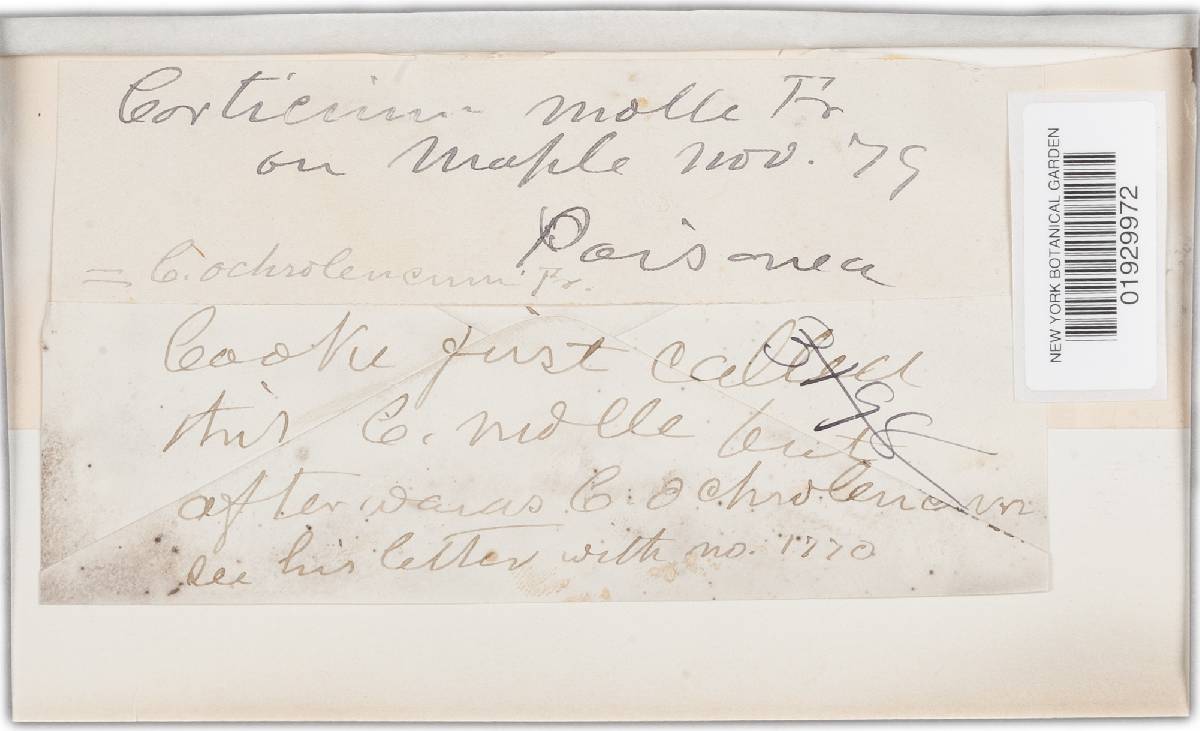 Corticium molle Fr
on Maple Nov. 79
= C. ochroleucum Fr.
Cooke first called
this C. molle but
afterwards C. ochroleucum
see his letter with no. 1770
NEW YORK BOTANICAL GARDEN
01929972